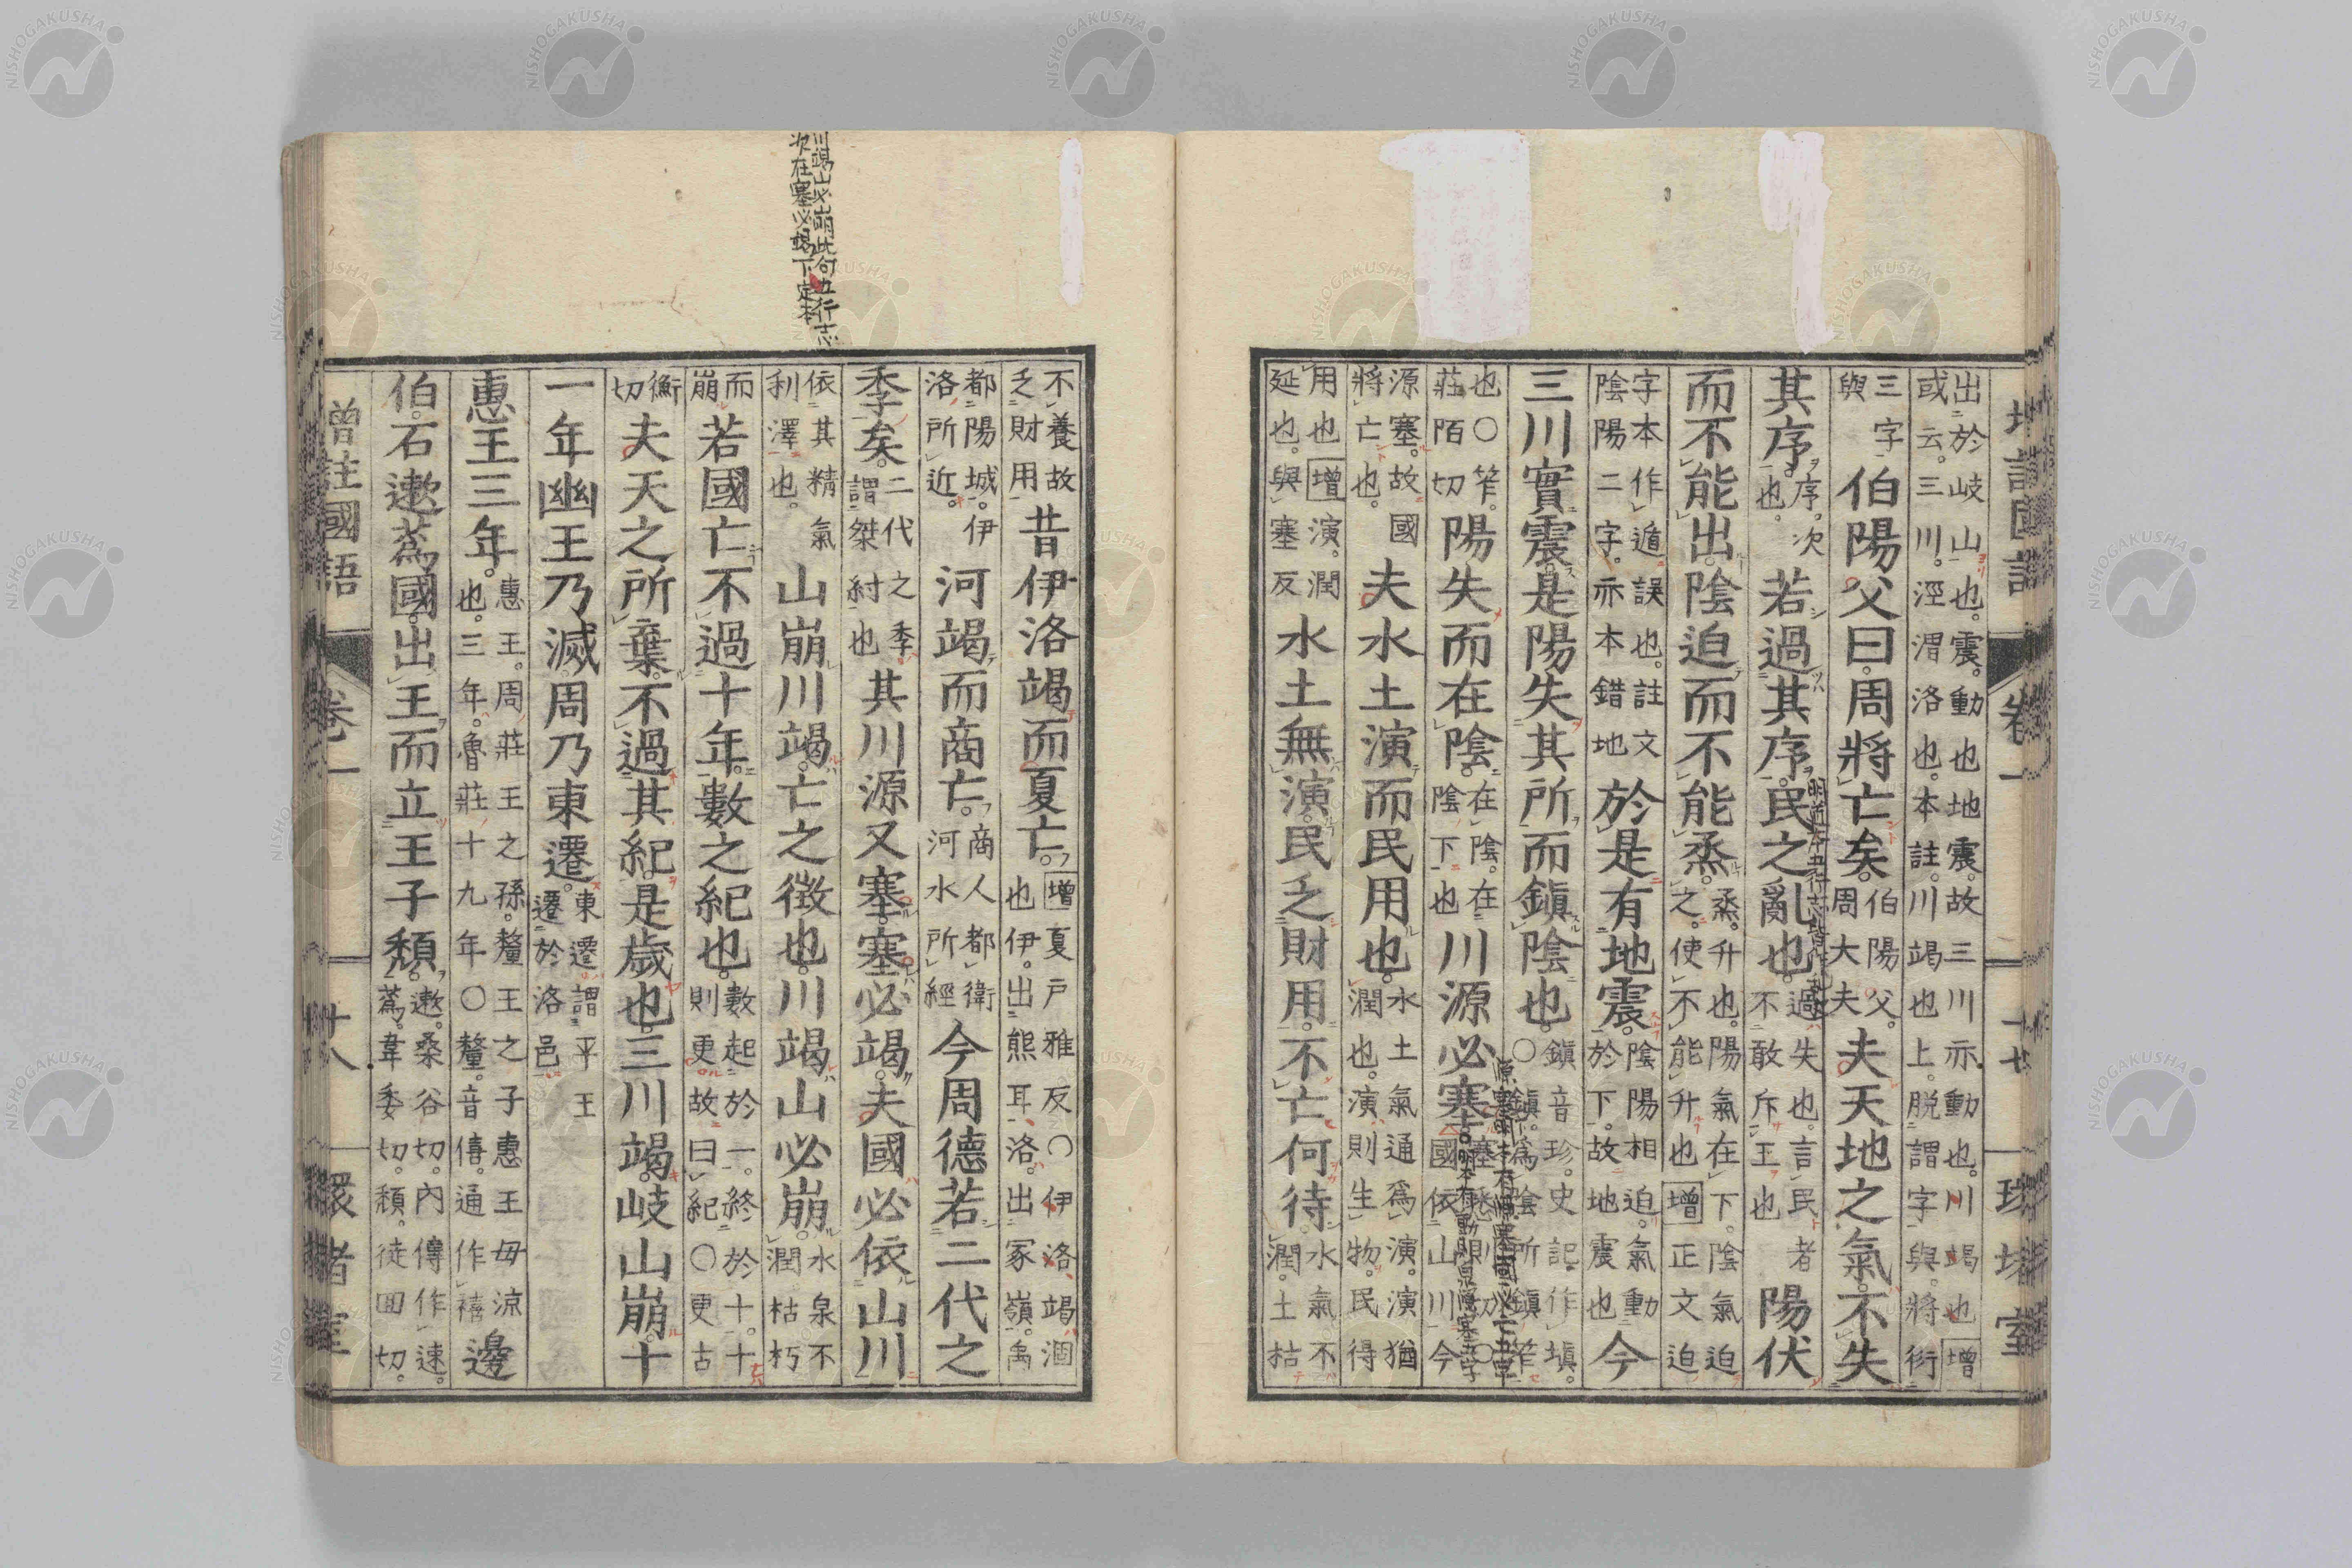 增註國語 卷一 十七 環堵室
出於岐山也。震。動也地震。故三川亦動也。川竭也增
或云。三川。涇渭洛也。本註。川竭也上。脱謂字與。將衍
三字與伯陽父曰。周將亡矣。伯陽父。周大夫夫天地之氣。不失
其序。序。次也。若過其序。民之亂也。過失也。言民者不敢斥王也陽伏
而不能出。陰迫而不能烝。烝。升也。陽氣在下。陰氣迫之。使不能升也增正文迫
字本作遁誤也。註文陰陽二字。亦本錯地於是有地震。陰陽相迫。氣動於下。故地震也今
三川實震。是陽失其所而鎮陰也。鎮音珍。史記。作塡。〇鎮。爲陰所鎮笮
也〇笮。莊陌切陽失而在陰。在陰。在陰下也川源必塞。國依山川今
源塞。故國將亡也。夫水土演而民用也。水土氣通爲演。演猶潤也。演則生物。民得
用也增演。潤延也。與塞反水土無演。民乏財用。不亡何待。水氣不潤。土枯
川竭山必崩此句五行志
次在塞必竭下定本
不養故乏財用昔伊洛竭而夏亡。增夏戶雅反〇伊洛竭涸也伊。出熊耳洛。出冢嶺。禹
都陽城。伊洛所近。河竭而商亡。商人都衛河水所經今周德若二代之
季矣。二代之季謂桀紂也其川源又塞。塞必竭。夫國必依山川
依其精氣利澤也。山崩川竭。亡之徵也。川竭山必崩。水泉不潤枯朽
而崩若國亡不過十年。數之紀也。數起於一。終於十。十則更故曰紀〇更古
衡切夫天之所棄。不過其紀。是歲也。三川竭。岐山崩。十
一年幽王乃滅周乃東遷。東遷謂平王遷於洛邑
惠王三年。惠王。周莊王之孫。釐王之子惠王毋涼也。三年。魯莊十九年〇釐。音僖。通作禧邊
伯石遬蔿國。出王而立王子頹。遬。桑谷切。內傳作速。蔿。韋委切。頹。徒回切。
增註國語 卷一 十八 環堵室